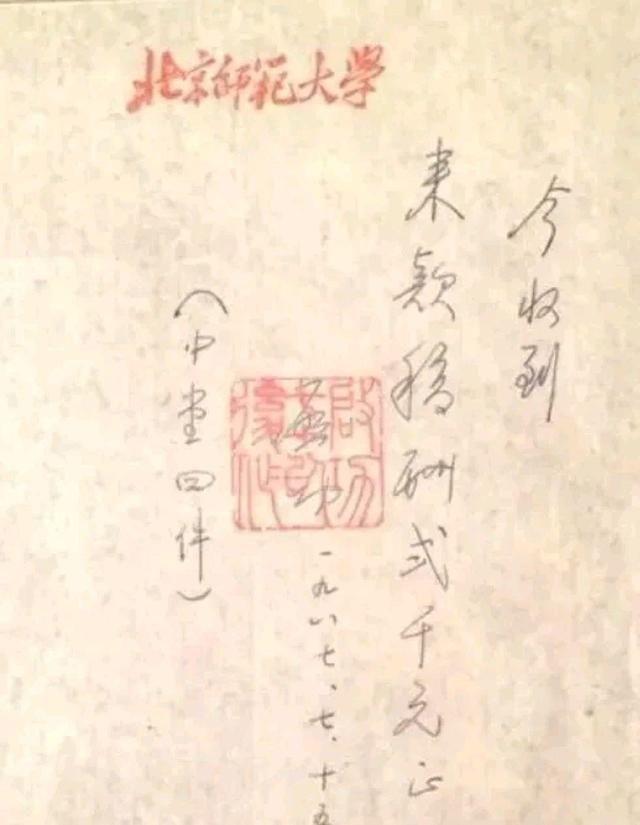 北京师范大学
今收到
来款稿酬弍千元正
启功
一九八七、七、十五
（中堂四件）